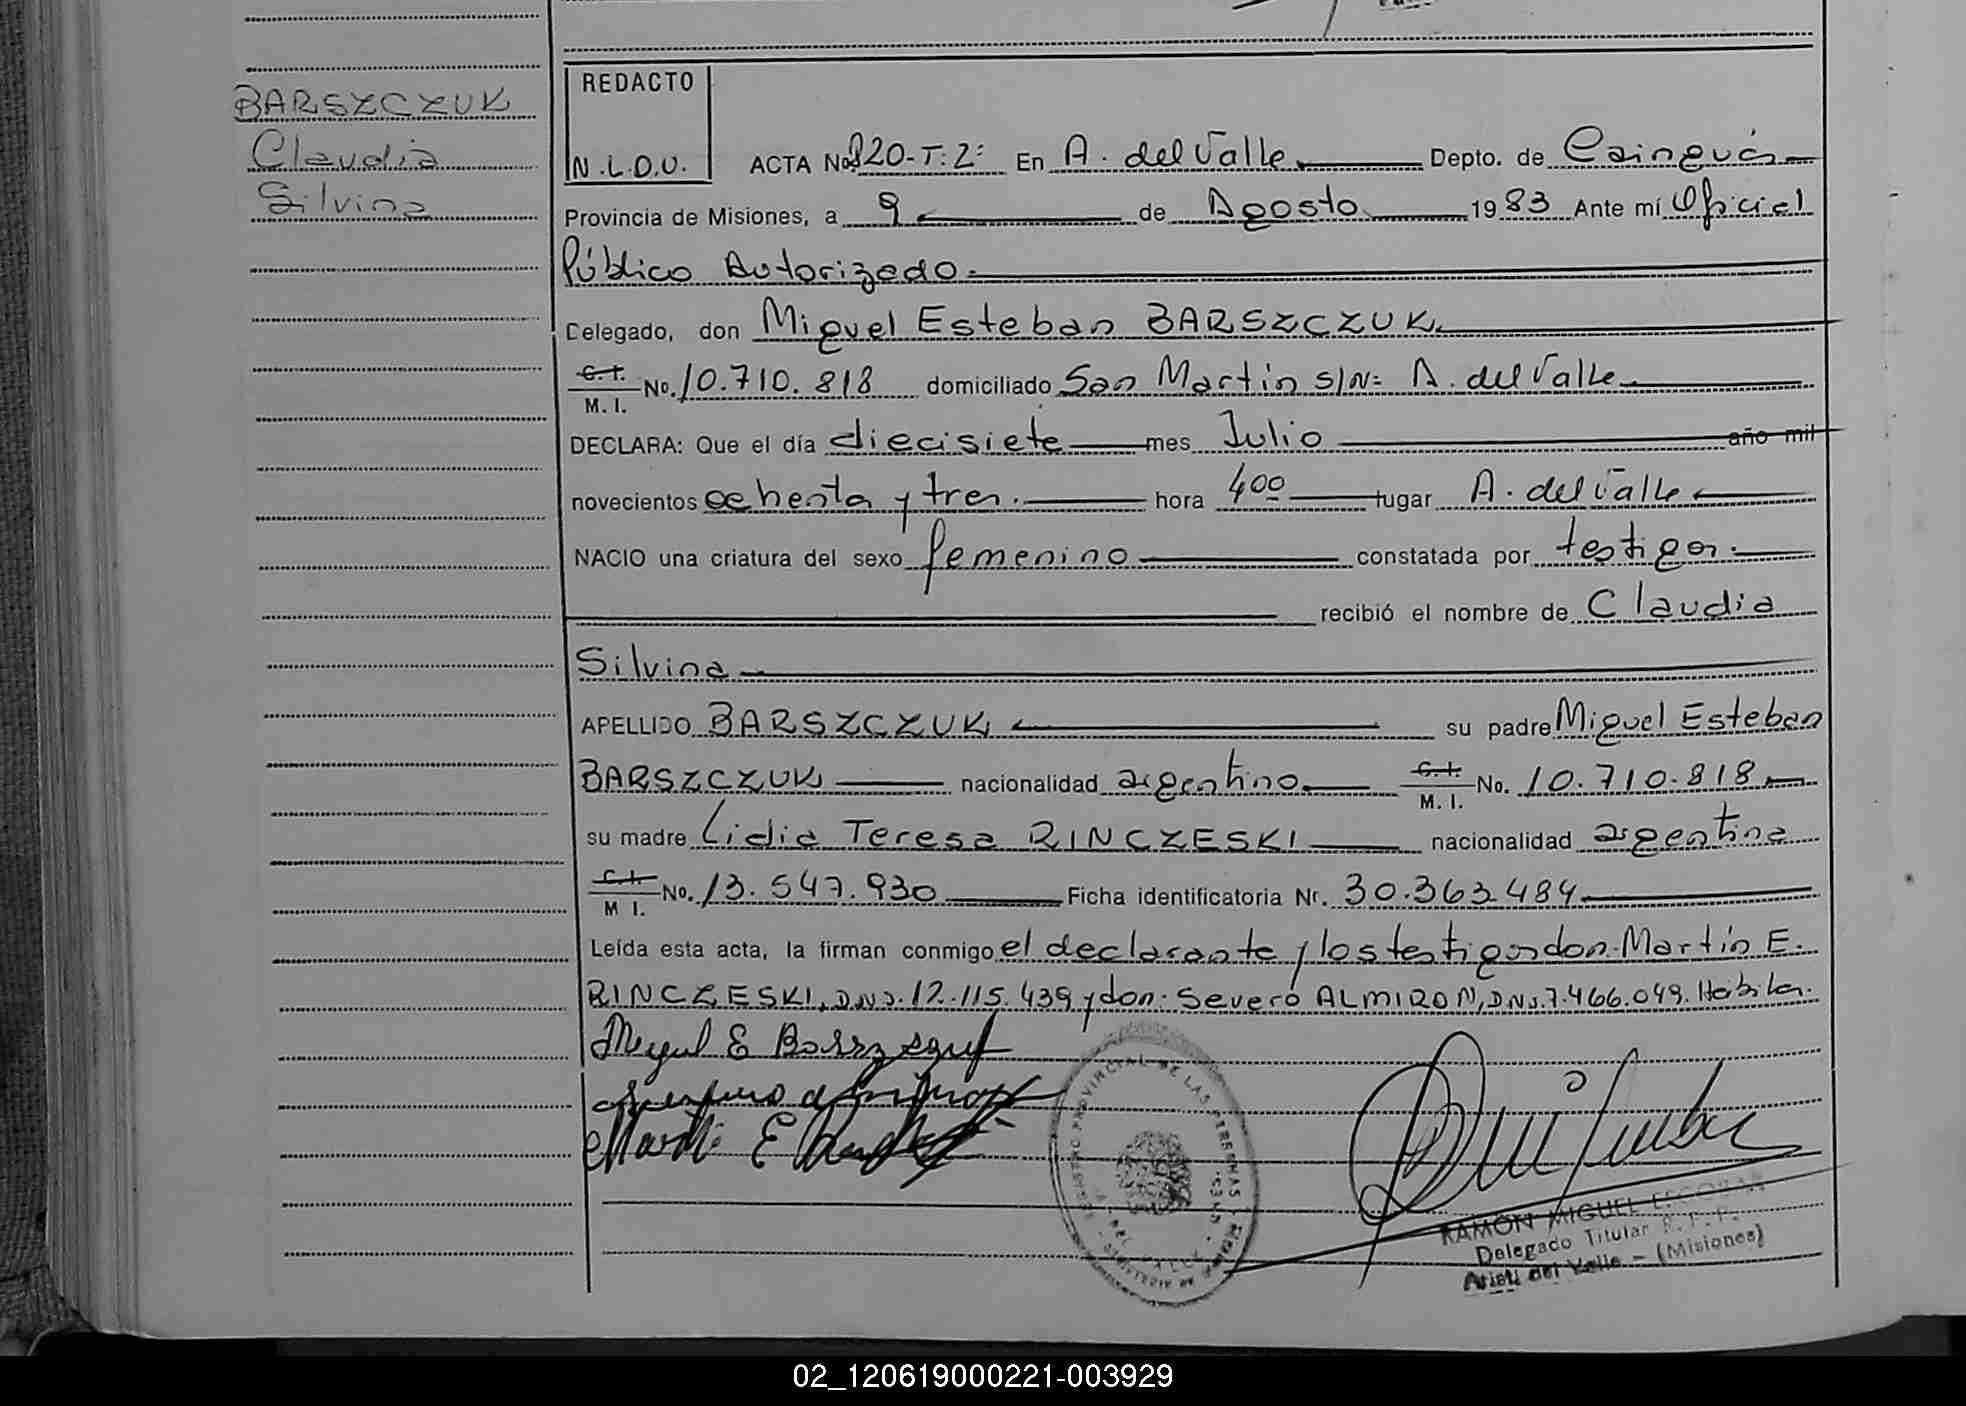 BARSZCZUK
Claudia
Silvina
REDACTO
N.L.D.U.
ACTA No 820-T:2: En A. del Valle Depto. de Cainguás
Provincia de Misiones, a 9 de Agosto 1983 Ante mí Oficial
Público Autorizado.
Delegado, don Miguel Esteban BARSZCZUK
C.I. M.I. No. 10.710.818 domiciliado San Martín s/n: A. del Valle
DECLARA: Que el día diecisiete mes Julio año mil
novecientos ochenta y tres. hora 400 lugar A. del Valle
NACIO una criatura del sexo femenino constatada por testigos.
recibió el nombre de Claudia
Silvina
APELLIDO BARSZCZUK su padre Miguel Esteban
BARSZCZUK nacionalidad argentino C.I. M.I. No. 10.710.818
su madre Lidia Teresa RINCZESKI nacionalidad argentina
C.I. M I. No. 13.547.930 Ficha identificatoria Nr. 30.363.484
Leída esta acta, la firman conmigo el declarante y los testigos don: Martín E.
RINCZESKI, D.N.I. 12.115.439 y don: Severo ALMIRON, D.N.I. 7.466.049. Hábiles.
Miguel E Barszczuk
REGISTRO PROVINCIAL DE LAS PERSONAS
RAMON MIGUEL ESCOBAR
Delegado Titular R.P.P.
Arist. del Valle - (Misiones)
02_120619000221-003929